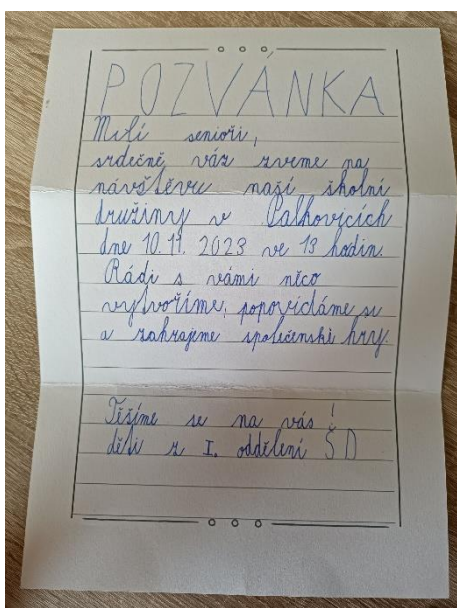 POZVÁNKA
Milí senioři,
srdečně vás zveme na
návštěvu naší školní
družiny v Palkovicích
dne 10.11. 2023 ve 13 hodin.
Rádi s vámi něco
vytvoříme, popovídáme si
a zahrajeme společenské hry.
Těšíme se na vás!
děti z I. oddělení ŠD